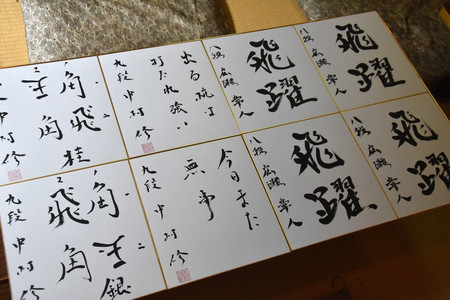 飛躍
八段 広瀬章人
飛躍
八段 広瀬章人
出る杭は
打たれ強い
九段 中村修
角飛桂
王角
九段 中村修
飛躍
八段 広瀬章人
飛躍
八段 広瀬章人
今日また
無事
九段 中村修
角王銀
飛角
九段 中村修